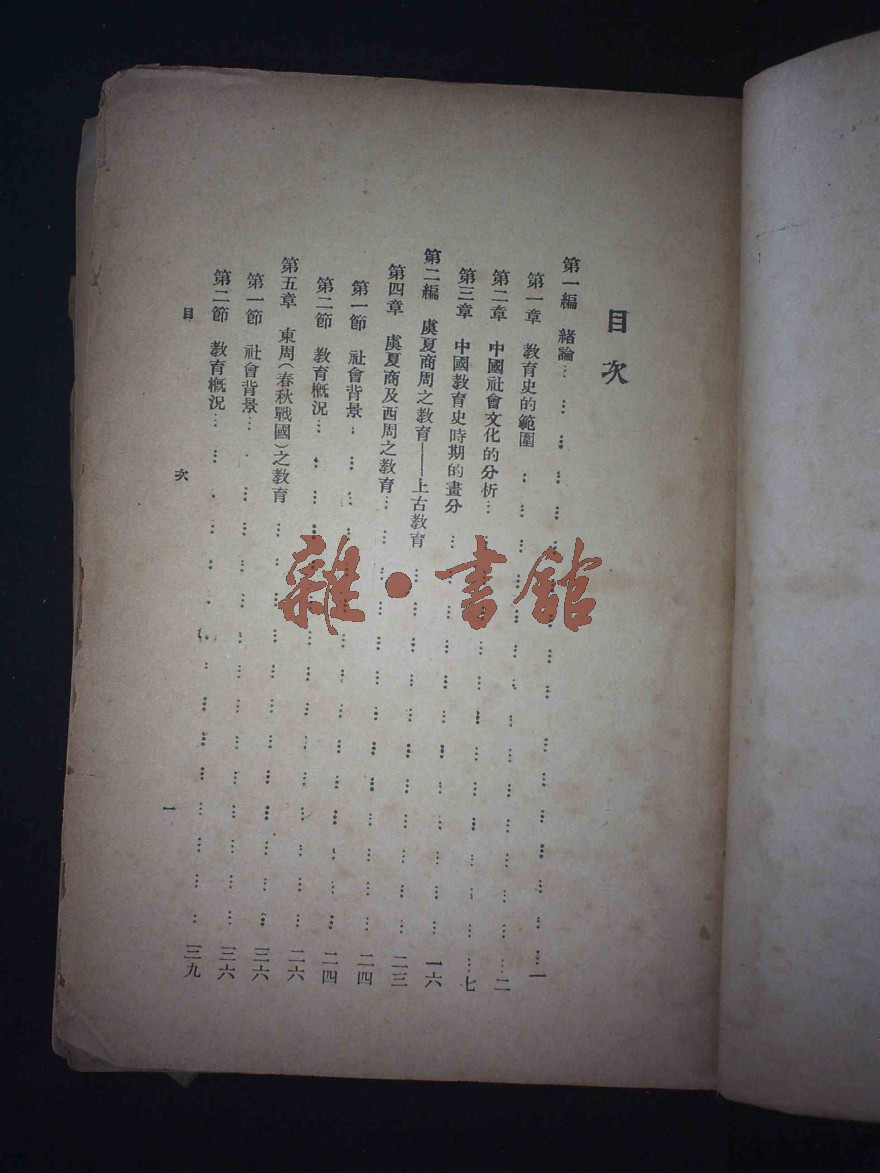 目次
第一編 緒論……一
第一章 教育史的範圍……二
第二章 中國社會文化的分析……七
第三章 中國教育史時期的畫分……一六
第二編 虞夏商周之教育——上古教育……二三
第四章 虞夏商及西周之教育……二四
第一節 社會背景……二四
第二節 教育概況……二六
第五章 東周(春秋戰國)之教育……三六
第一節 社會背景……三六
第二節 教育概況……三九
目次 一
雜·書館